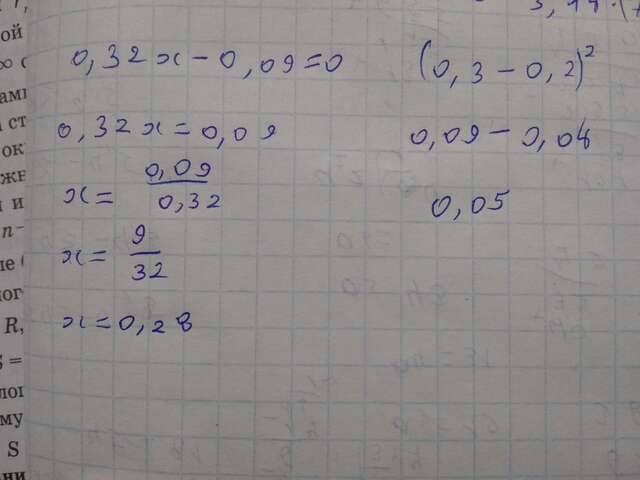 0,32x-0,09=0
0,32x=0,09
x= 0,09/0,32
x= 9/32
x=0,28
(0,3-0,2)²
0,09-0,04
0,05
ой
∞
ами
ст
ок
же
и
n-
ые
ног
R,
S =
лог
му
S
ни